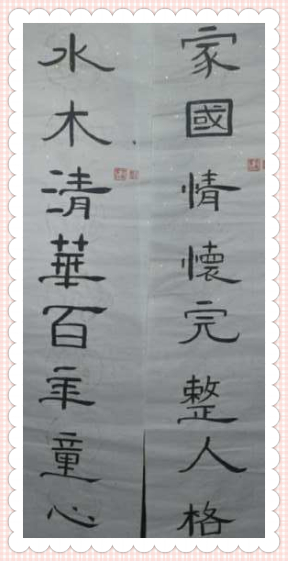 家國情懷完整人格
水木清華百年童心